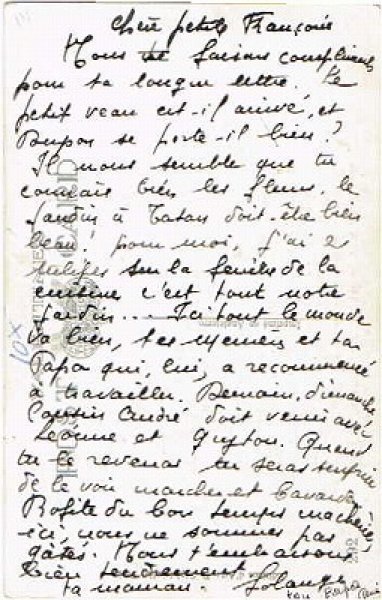 Chère petite Françoise
Nous te faisons compliments
pour ta longue lettre. Le
petit veau est-il arrivé, et
Poupon se porte-il bien?
Il nous semble que tu
connais bien les fleurs, le
Jardin à Tatan doit-être bien
beau! pour moi, j'ai 2
tulipes sur la fenêtre de la
cuisine c'est tout notre
jardin... Ici tout le monde
va bien, tes Memers et ta
Papa qui, lui, a recommencé
à travailler. Demain, dimanche
Cousin André doit venir avec
Léonne et Guyton. Quand
tu le reverras tu seras surprise
de le voir marcher et bavarder
Profite du bon temps ma chérie,
ici, nous ne sommes pas
gâtés. Nous t'embrassons
bien tendrement
ta maman. Solange
ton Papa
10x
292